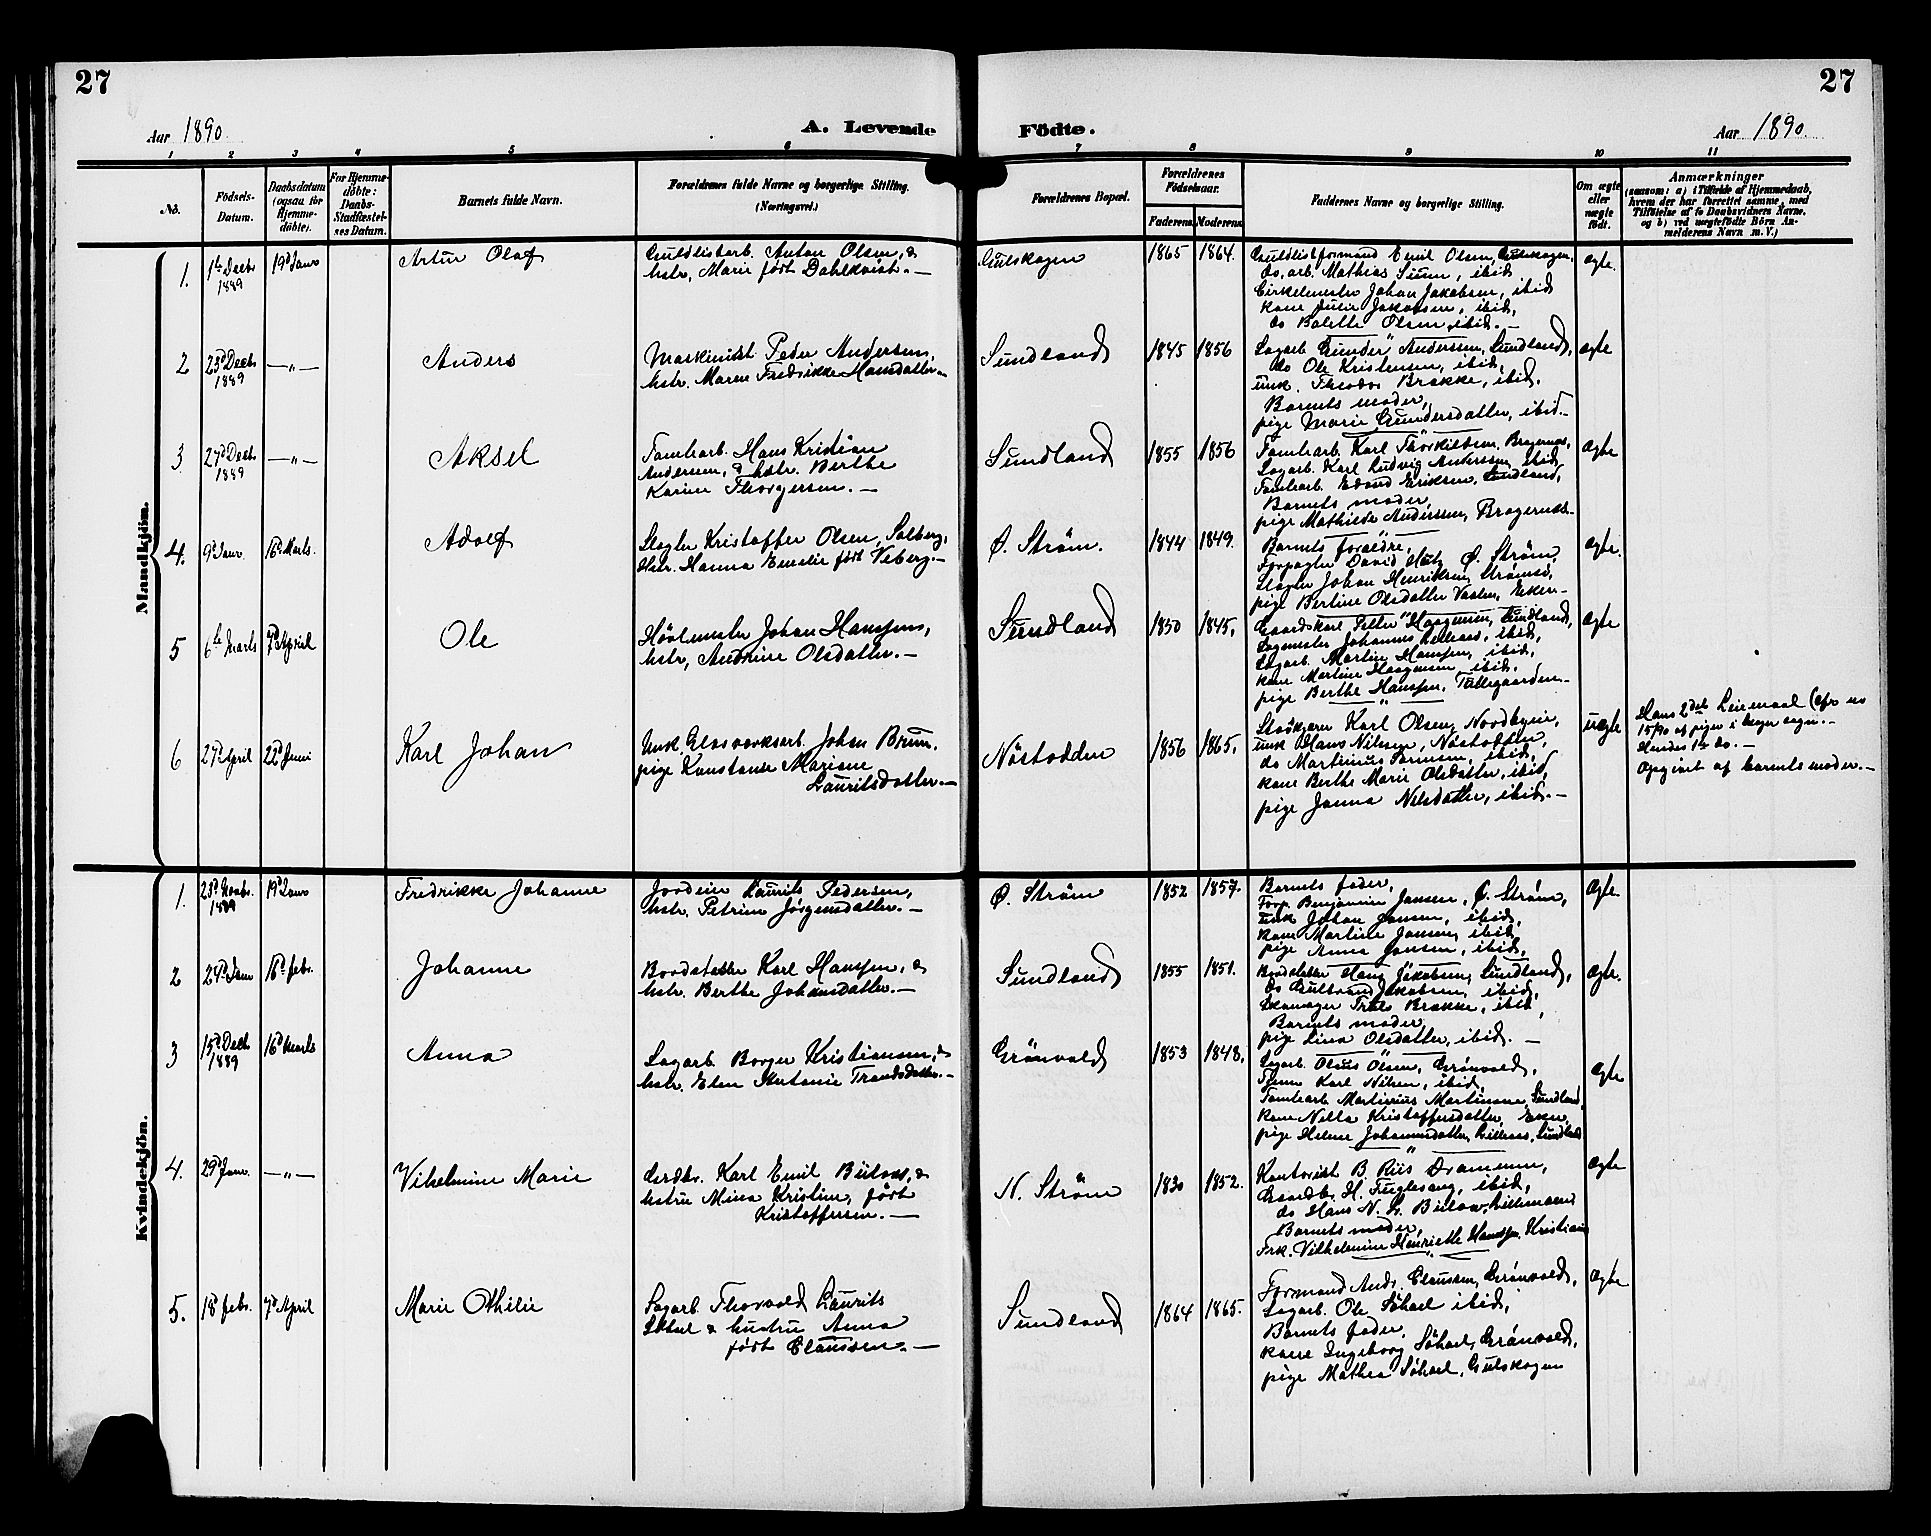 27
27
Aar 1890.
A. Levende
Födte.
Aar 1890.
1 2 3 4 5 6 7 8 9 10 11
No.
Födsels-
Datum.
Daabsdatum
(ogsaa for
Hjemme-
döbte).
For Hjemme-
döbte:
Daabs-
Stadfæstel-
ses Datum.
Barnets fulde Navn.
Forældrenes fulde Navne og borgerlige Stilling.
(Næringsvei.)
Forældrenes Bopæl.
Forældrenes
Födselsaar.
Faderens Moderens
Faddernes Navne og borgerlige Stilling.
Om ægte
eller
uægte
født.
Anmærkninger
(saasom: a) i Tilfælde af Hjemmedaab,
hvem der har forrettet samme, med
Tilföielse af to Daabsvidners Navne,
og b) ved uægtefödte Börn An-
melderens Navn m. V.)
Mandkjön.
1.
1ste Decbr
1889
19d Janr
Artur Olaf
Guldlistarb. Anton Olsen, &
hstr. Marie født Dahlkvist. —
Gulskogen
1865 1864.
Guldlistformand Emil Olsen, Gulskogen,
do. arb. Mathias Simen, ibid,
Cirkelmester Johan Jakobsen, ibid
kone Julie Jakobsen, ibid,
do Bolette Olsen, ibid. —
ægte.
2
23d Decbr
1889
— „ —
Anders
Maskinist. Peder Andersen,
hstr. Maren Fredrikke Hansdatter —
Sundland
1845 1856
Sagarb. Gunder Anderssen, Sundland,
do Ole Kristensen, ibid,
unk. Theodor Brakke, ibid.
Barnets moder,
pige Marie Gundersdatter, ibid. —
ægte
3.
27d Decbr.
1889
— „ —
Aksel
Tomtearb. Hans Kristian
Andersen, & hstr. Berthe
Karine Thorgersen. —
Sundland
1855 1856
Tomtearb. Karl Thorkildsen, Bragernæs,
Sagarb. Karl Ludvig Anderssen, ibid,
Tomtearb. Edvard Eriksen, Sundland,
Barnets moder,
pige Mathilde Anderssen, Bragernæs. —
ægte
4.
9d Janr.
16d Marts.
Adolf
Slagter Kristoffer Olsen, Solberg,
Hstr. Hanna Emelie født Viberg. —
Ø. Strøm.
1844 1849.
Barnets forældre,
Forpagter David Holtz, Ø. Strøm,
Slagter Johan Henriksen, Strømsø,
pige Bertine Olsdatter Vaalen, Eker —
ægte.
5
6te Marts
7d April
Ole
Høvlemester Johan Hanssen,
hstr. Andrine Olsdatter. —
Sundland
1850 1845,
Gaardskarl Petter Haagensen, Sundland,
Sagmester Johannes Lilleaas, ibid,
Sagarb. Martin Hanssen, ibid,
kone Martine Haagensen, ibid,
pige Berthe Hanssen, Tollegaarden —
ægte
6
27d April
22d Juni
Karl Johan
Unk. Glasværksarb. Johan Bruun,
pige Konstanse Mariane
Lauritsdatter. —
Nöstodden
1856 1865.
Karl Olsen, Nordbyeie,
unk Hans Nilsen, Nöstodden,
do Martinius Sørensen, ibid,
kone Berthe Marie Olsdatter, ibid,
pige Janna Nilsdatter, ibid. —
uægte
Hans 2det Leiermaal (cfr no
15/90 af piger i bergn sogn. —
Hendes 1ste do. —
Opgivet af barnets moder. —
Kvindekjön.
1.
23d Novbr.
1889
19d Janr
Fredrikke Johanne
Jordeier Laurits Pedersen,
hstr. Petrine Jørgensdatter. —
Ø. Strøm
1852 1857.
Barnets fader,
Forp. Benjamin Jansen, Ø. Strøm,
unk Johan Jansen, ibid,
kone Martine Jansen, ibid
pige Anna Jansen, ibid,
ægte
2
24d Janr
16d febr.
Johanne
Bordstabler Karl Hanssen, &
hstr. Berthe Johansdatter. —
Sundland
1855 1851.
Bordstabler Hans Jakobsen, Sundland,
do Gulbrand Jakobsen, ibid,
Skomager Brakke, ibid,
Barnets moder,
pige Lina Olsdatter, ibid. —
ægte.
3
15d Decbr.
1889
16d Marts
Anna
Sagarb. Borger Kristiansen, &
hstr. Elen Antonie Trondsdatter. —
Grönvold
1853 1848.
Sagarb. Olaus Olsen, Grönvold,
Karl Nilsen, ibid,
Tomtearb. Martinius Martinsen, Sundland,
kone Nella Kristoffersdatter, Eker,
pige Helene Johannesdatter, Lilleaas, Sundland
ægte
4.
29d Janr.
— „ —
Vilhelmine Marie
Grdbr. Karl Emil Bülow, &
hstru Mina Kristine, født
Kristoffersen. —
N. Strøm
1830 1852.
Kontorist B. Riis Drammen,
Gaardbr. H. Fuglesang, ibid,
do Hans N. G. Bülow, Lillesand
Barnets moder,
Frk. Vilhelmine Henriette Hanssen, Kristiania
ægte
5.
18d febr.
7d April
Marie Othilie
Sagarb. Thorvald Laurits
Söhoel & hustru Anna
født Claussen. —
Sundland
1864 1865.
Formand Andr. Claussen, Grönvold,
Sagarb. Ole Söhoel ibid,
Barnets fader,
kone Ingeborg Söhoel, Grönvold,
pige Mathea Söhoel, Gulskogen
ægte